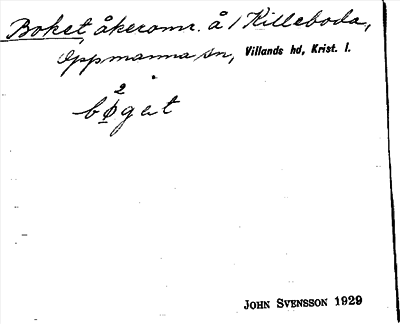 Boket, åkeromr. å 1 Killeboda,
Oppmanna sn, Villands hd, Krist. l.
2
bøgət
JOHN SVENSSON 1929